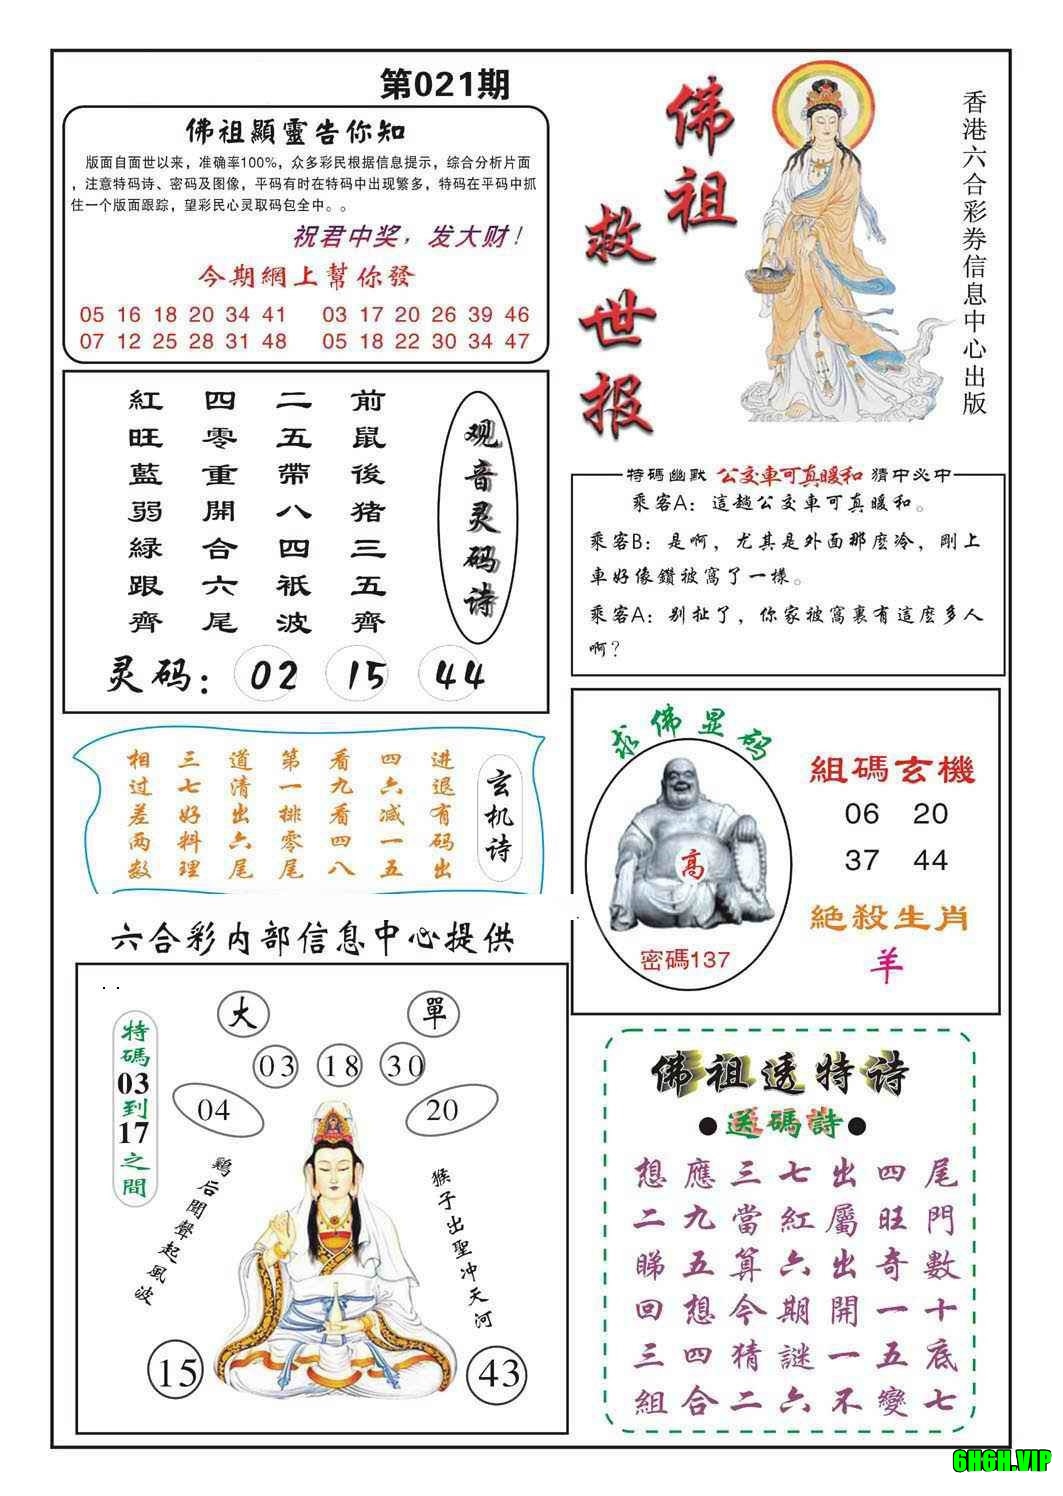 第021期
佛祖顯靈告你知
版面自面世以来，准确率100%，众多彩民根据信息提示，综合分析片面
，注意特码诗、密码及图像，平码有时在特码中出现繁多，特码在平码中抓
住一个版面跟踪，望彩民心灵取码包全中。。
祝君中奖，发大财！
今期網上幫你發
05 16 18 20 34 41 03 17 20 26 39 46
07 12 25 28 31 48 05 18 22 30 34 47
佛祖
救世报
香港六合彩券信息中心出版
观音灵码诗
前鼠後猪三五齊
二五帶八四祇波
四零重開合六尾
紅旺藍弱緑跟齊
灵码：02 15 44
特碼幽默 公交車可真暖和 猜中必中
乘客A：這趟公交車可真暖和。
乘客B：是啊，尤其是外面那麼冷，剛上
車好像鑽被窩了一樣。
乘客A：别扯了，你家被窩裏有這麼多人
啊？
玄机诗
进退有码出
四六减一五
看九看四八
第一排零尾
道清出六尾
三七好料理
相过差两数
求佛显码
高
密碼137
組碼玄機
06 20
37 44
絕殺生肖
羊
六合彩内部信息中心提供
大 單
03 18 30
04 20
特碼03到17之間
鷄后聞聲起風波
猴子出聖冲天河
15 43
佛祖透特诗
●送碼詩●
想應三七出四尾
二九當紅屬旺門
睇五算六出奇數
回想今期開一十
三四猜謎一五底
組合二六不變七
6H6H.VIP